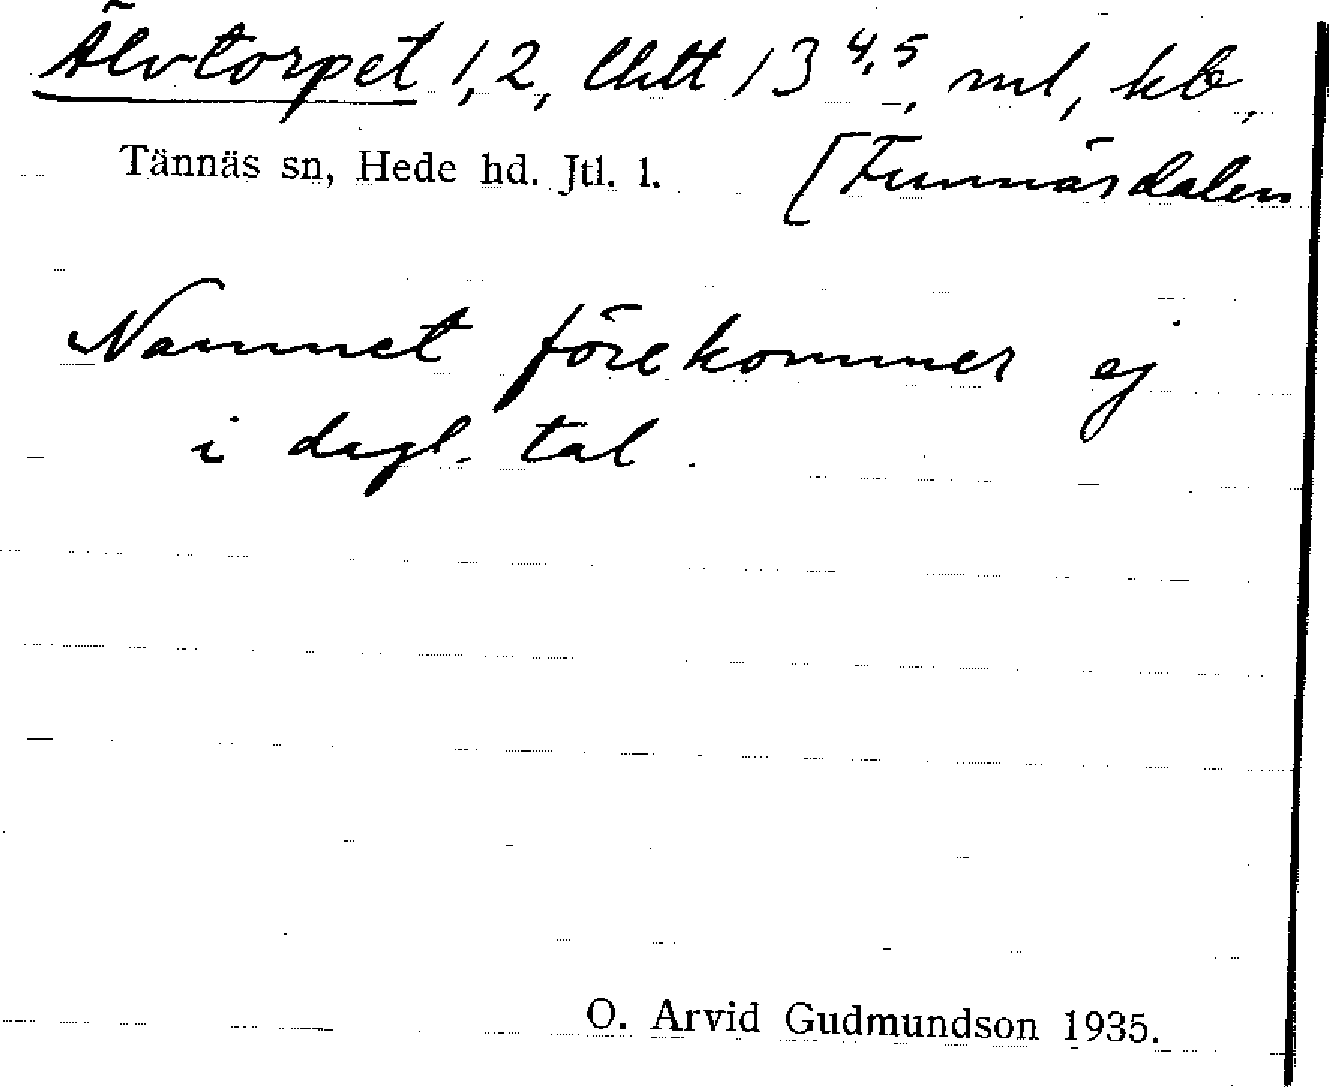 Älvtorpet 1,2, litt 13 4,5, ml, kb,
Tännäs sn, Hede hd. Jtl. l. [Funnäsdalen
Namnet förekommer ej
i dagl. tal.
O. Arvid Gudmundson 1935.